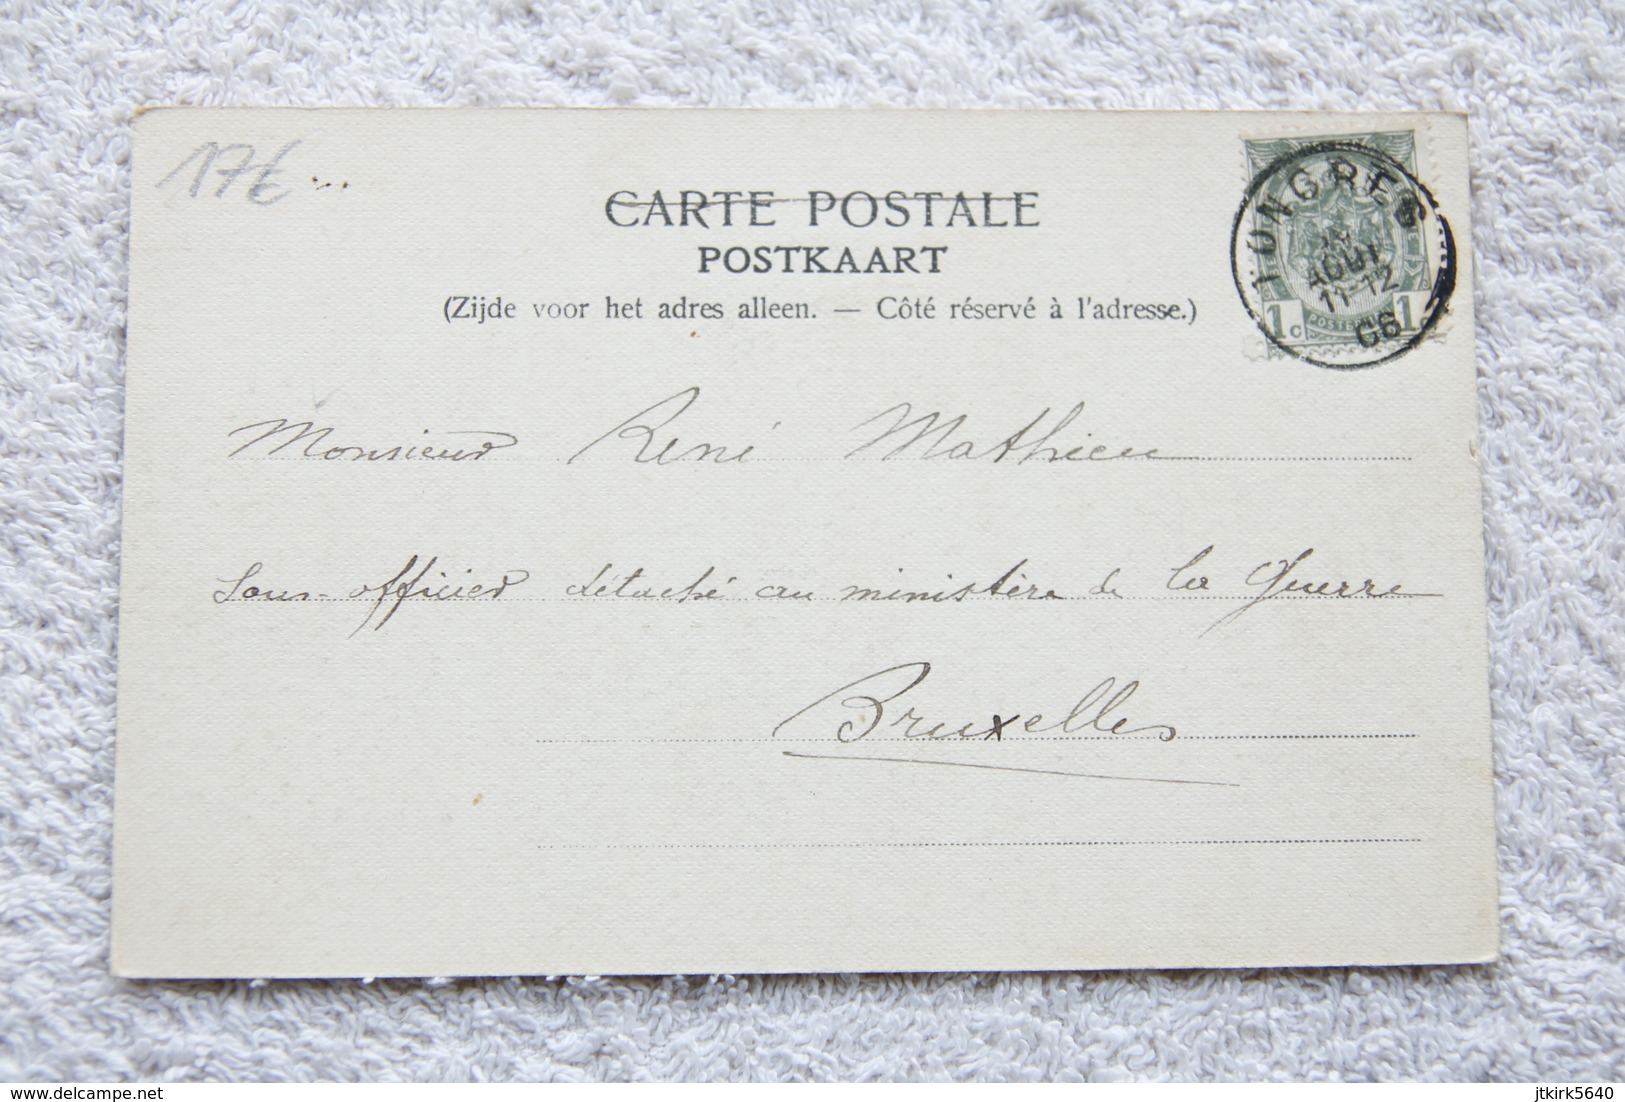 17€
CARTE POSTALE
POSTKAART
(Zijde voor het adres alleen. — Côté réservé à l'adresse.)
TONGRES
AOUT
11-12
06
1 c POSTERIJEN 1
Monsieur René Mathieu
Sous-officier détaché au ministère de la Guerre
Bruxelles
delcampe.net
jtkirk5640